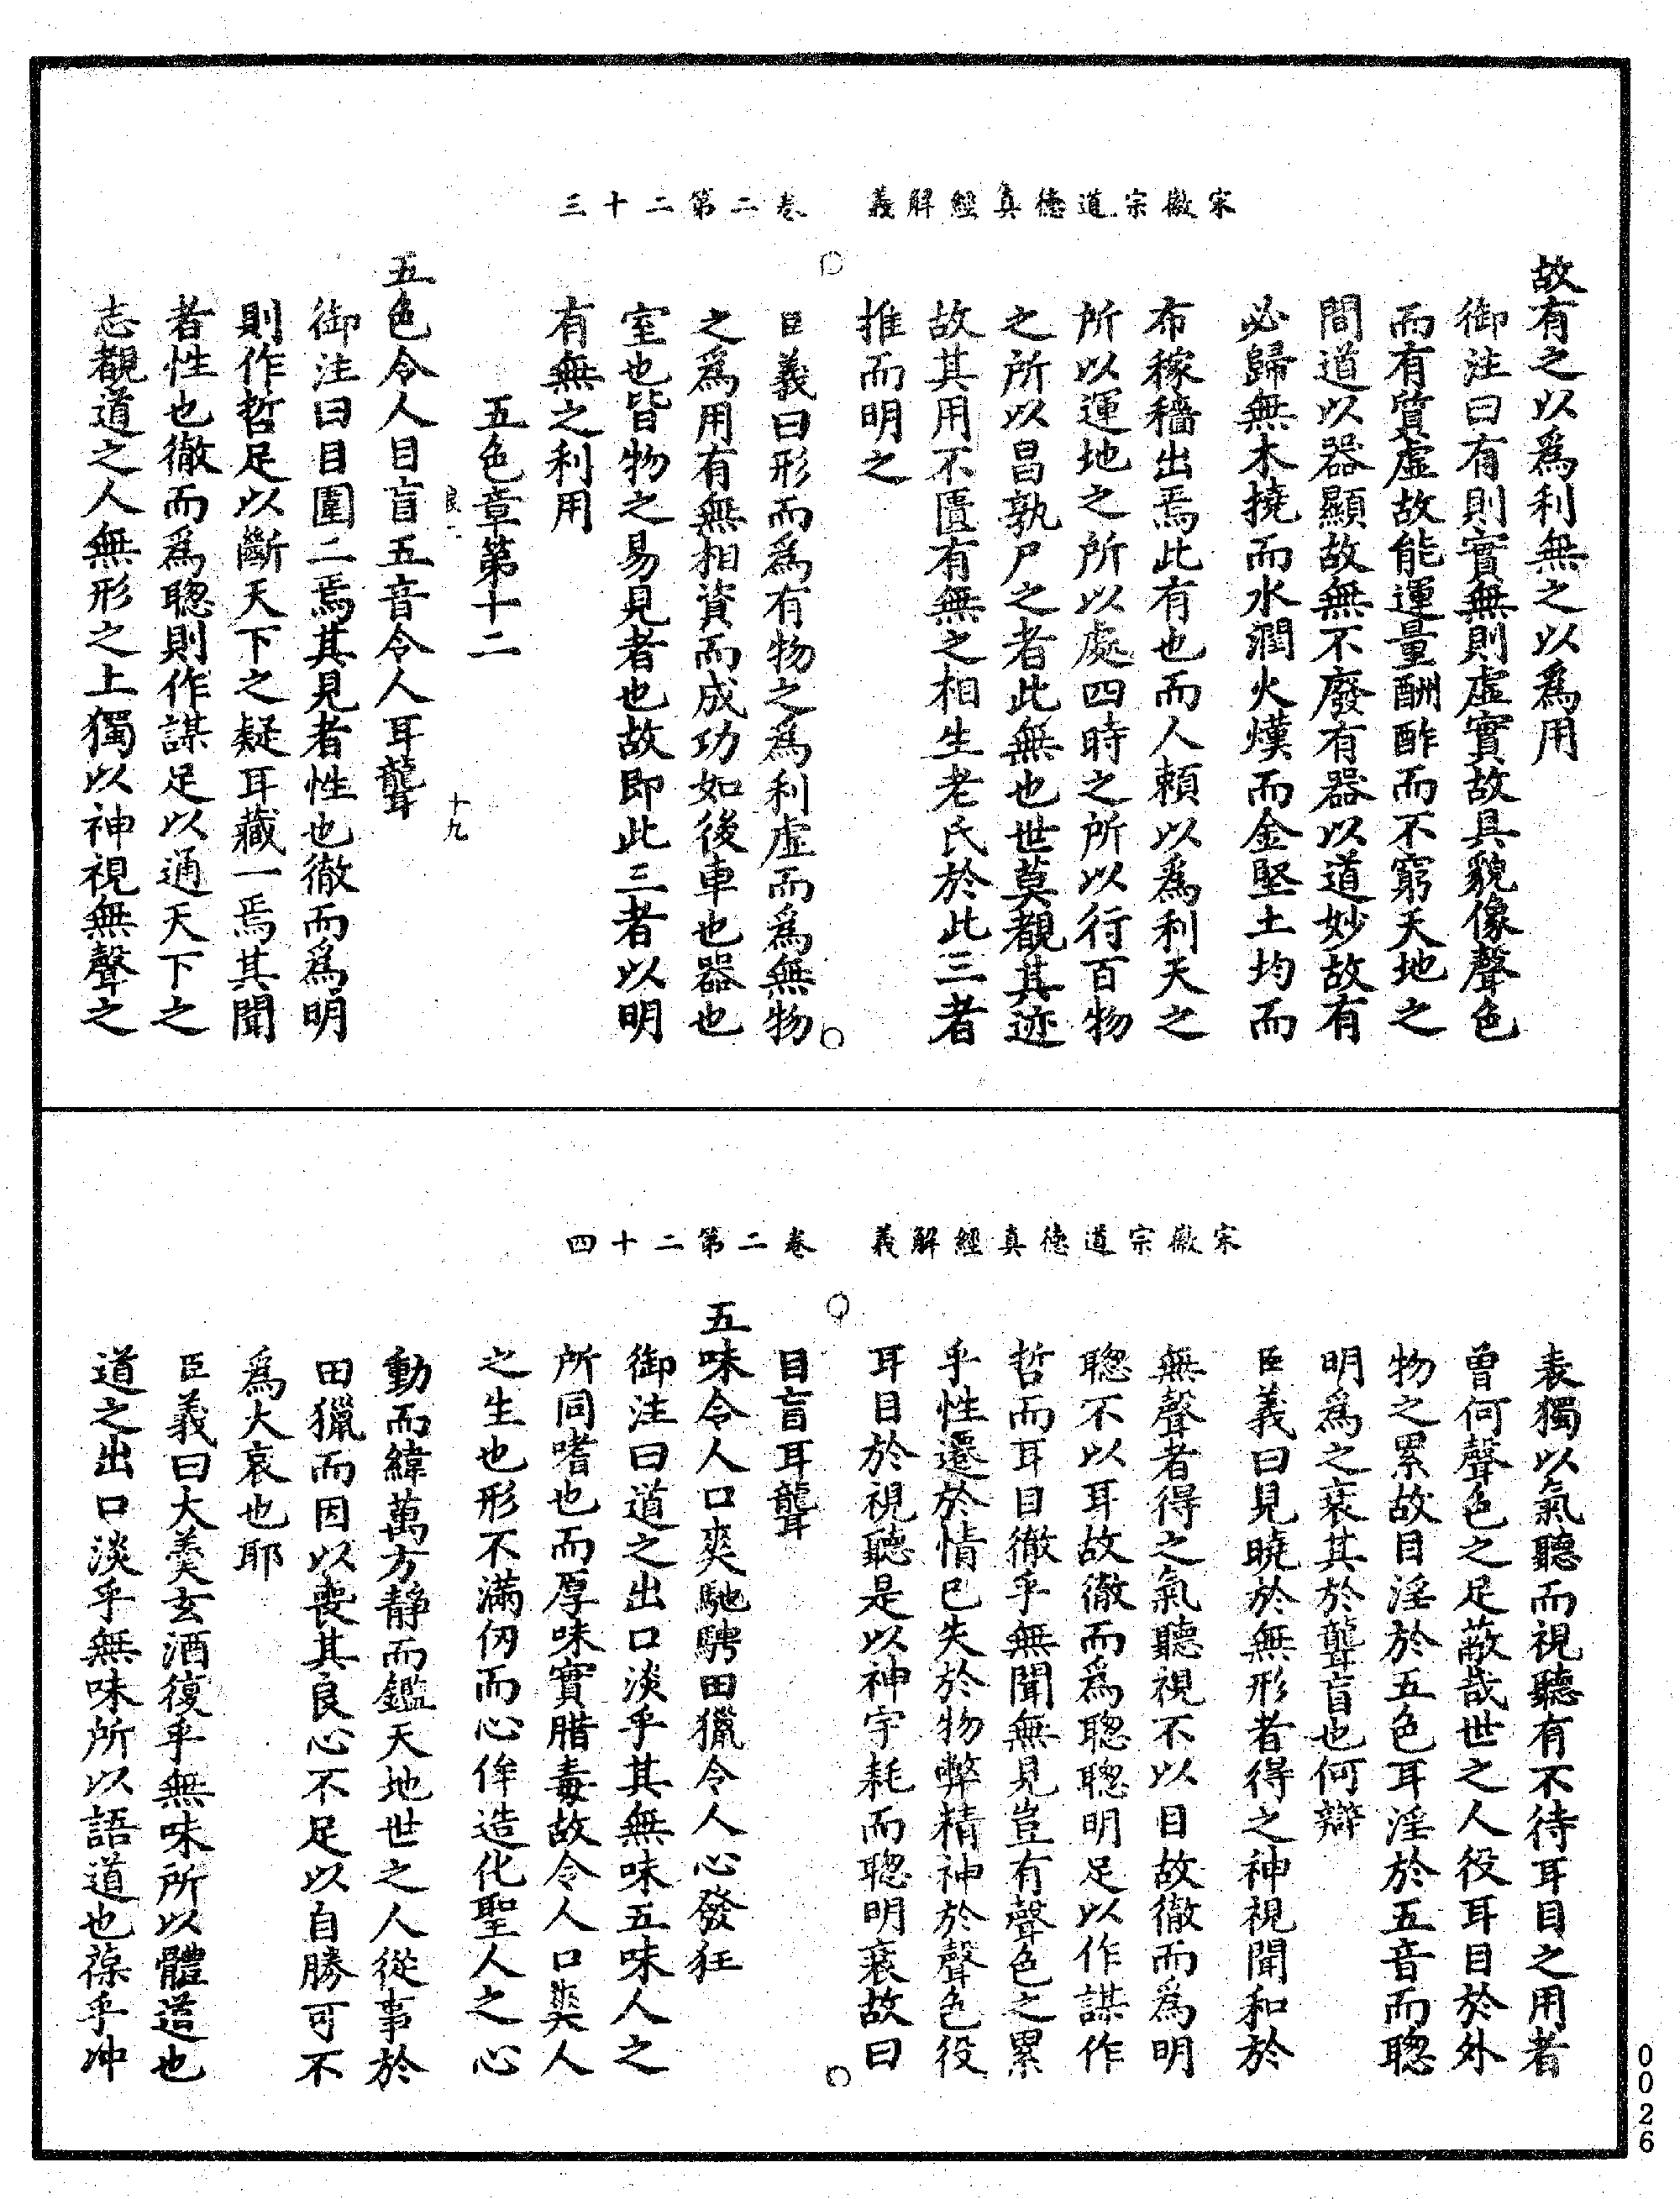 宋徽宗道德真經解義　卷二第二十三
故有之以爲利無之以爲用
御注曰有則實無則虛實故具貌像聲色
而有質虛故能運量酬酢而不窮天地之
間道以器顯故無不廢有器以道妙故有
必歸無木撓而水潤火熯而金堅土均而
布稼穡出焉此有也而人賴以爲利天之
所以運地之所以處四時之所以行百物
之所以昌孰尸之者此無也世莫覩其迹
故其用不匱有無之相生老氏於此三者
推而明之
臣義曰形而爲有物之爲利虛而爲無物
之爲用有無相資而成功如後車也器也
室也皆物之易見者也故即此三者以明
有無之利用
五色章第十二
十九
五色令人目盲五音令人耳聾
御注曰目圍二焉其見者性也徹而爲明
則作哲足以斷天下之疑耳藏一焉其聞
者性也徹而爲聦則作謀足以通天下之
志覩道之人無形之上獨以神視無聲之
宋徽宗道德真經解義　卷二第二十四
表獨以氣聽而視聽有不待耳目之用者
曾何聲色之足蔽哉世之人役耳目於外
物之累故目淫於五色耳淫於五音而聦
明爲之衰其於聾盲也何辯
臣義曰見曉於無形者得之神視聞和於
無聲者得之氣聽視不以目故徹而爲明
聦不以耳故徹而爲聦聦明足以作謀作
哲而耳目徹乎無聞無見豈有聲色之累
乎性遷於情已失於物弊精神於聲色役
耳目於視聽是以神宇耗而聦明衰故曰
目盲耳聾
五味令人口爽馳騁田獵令人心發狂
御注曰道之出口淡乎其無味五味人之
所同嗜也而厚味實腊毒故令人口爽人
之生也形不滿仞而心侔造化聖人之心
動而緯萬方靜而鑑天地世之人從事於
田獵而因以喪其良心不足以自勝可不
爲大哀也耶
臣義曰大羹玄酒復乎無味所以體道也
道之出口淡乎無味所以語道也葆乎冲
0026